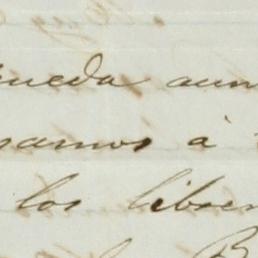 ueda aun
samos à
los liber
B